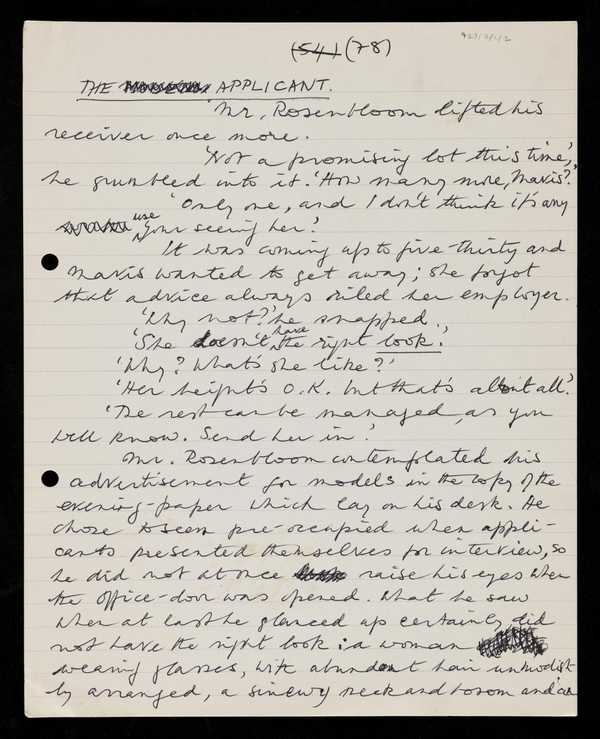 (54) (78)
THE APPLICANT.
'Mr. Rosenbloom lifted his
receiver once more.
'Not a promising lot this time',
he grumbled into it. 'How many more, Mavis?'
'Only one, and I don't think it's any
use your seeing her.'
It was coming up to five-thirty and
Mavis wanted to get away; she forgot
that advice always riled her employer.
'Why not?' he snapped.
'She doesn't have the right look.'
'Why? What's she like?'
'Her height's O.K. but that's about all.'
'The rest can be managed, as you
well know. Send her in.'
Mr. Rosenbloom contemplated his
advertisement for models in the copy of the
evening-paper which lay on his desk. He
chose to seem pre-occupied when appli-
cants presented themselves for interview, so
he did not at once raise his eyes when
the office-door was opened. What he saw
when at last he glanced up certainly did
not have the right look: a woman
wearing glasses, with abundant hair unmodish-
ly arranged, a sinewy neck and bosom and